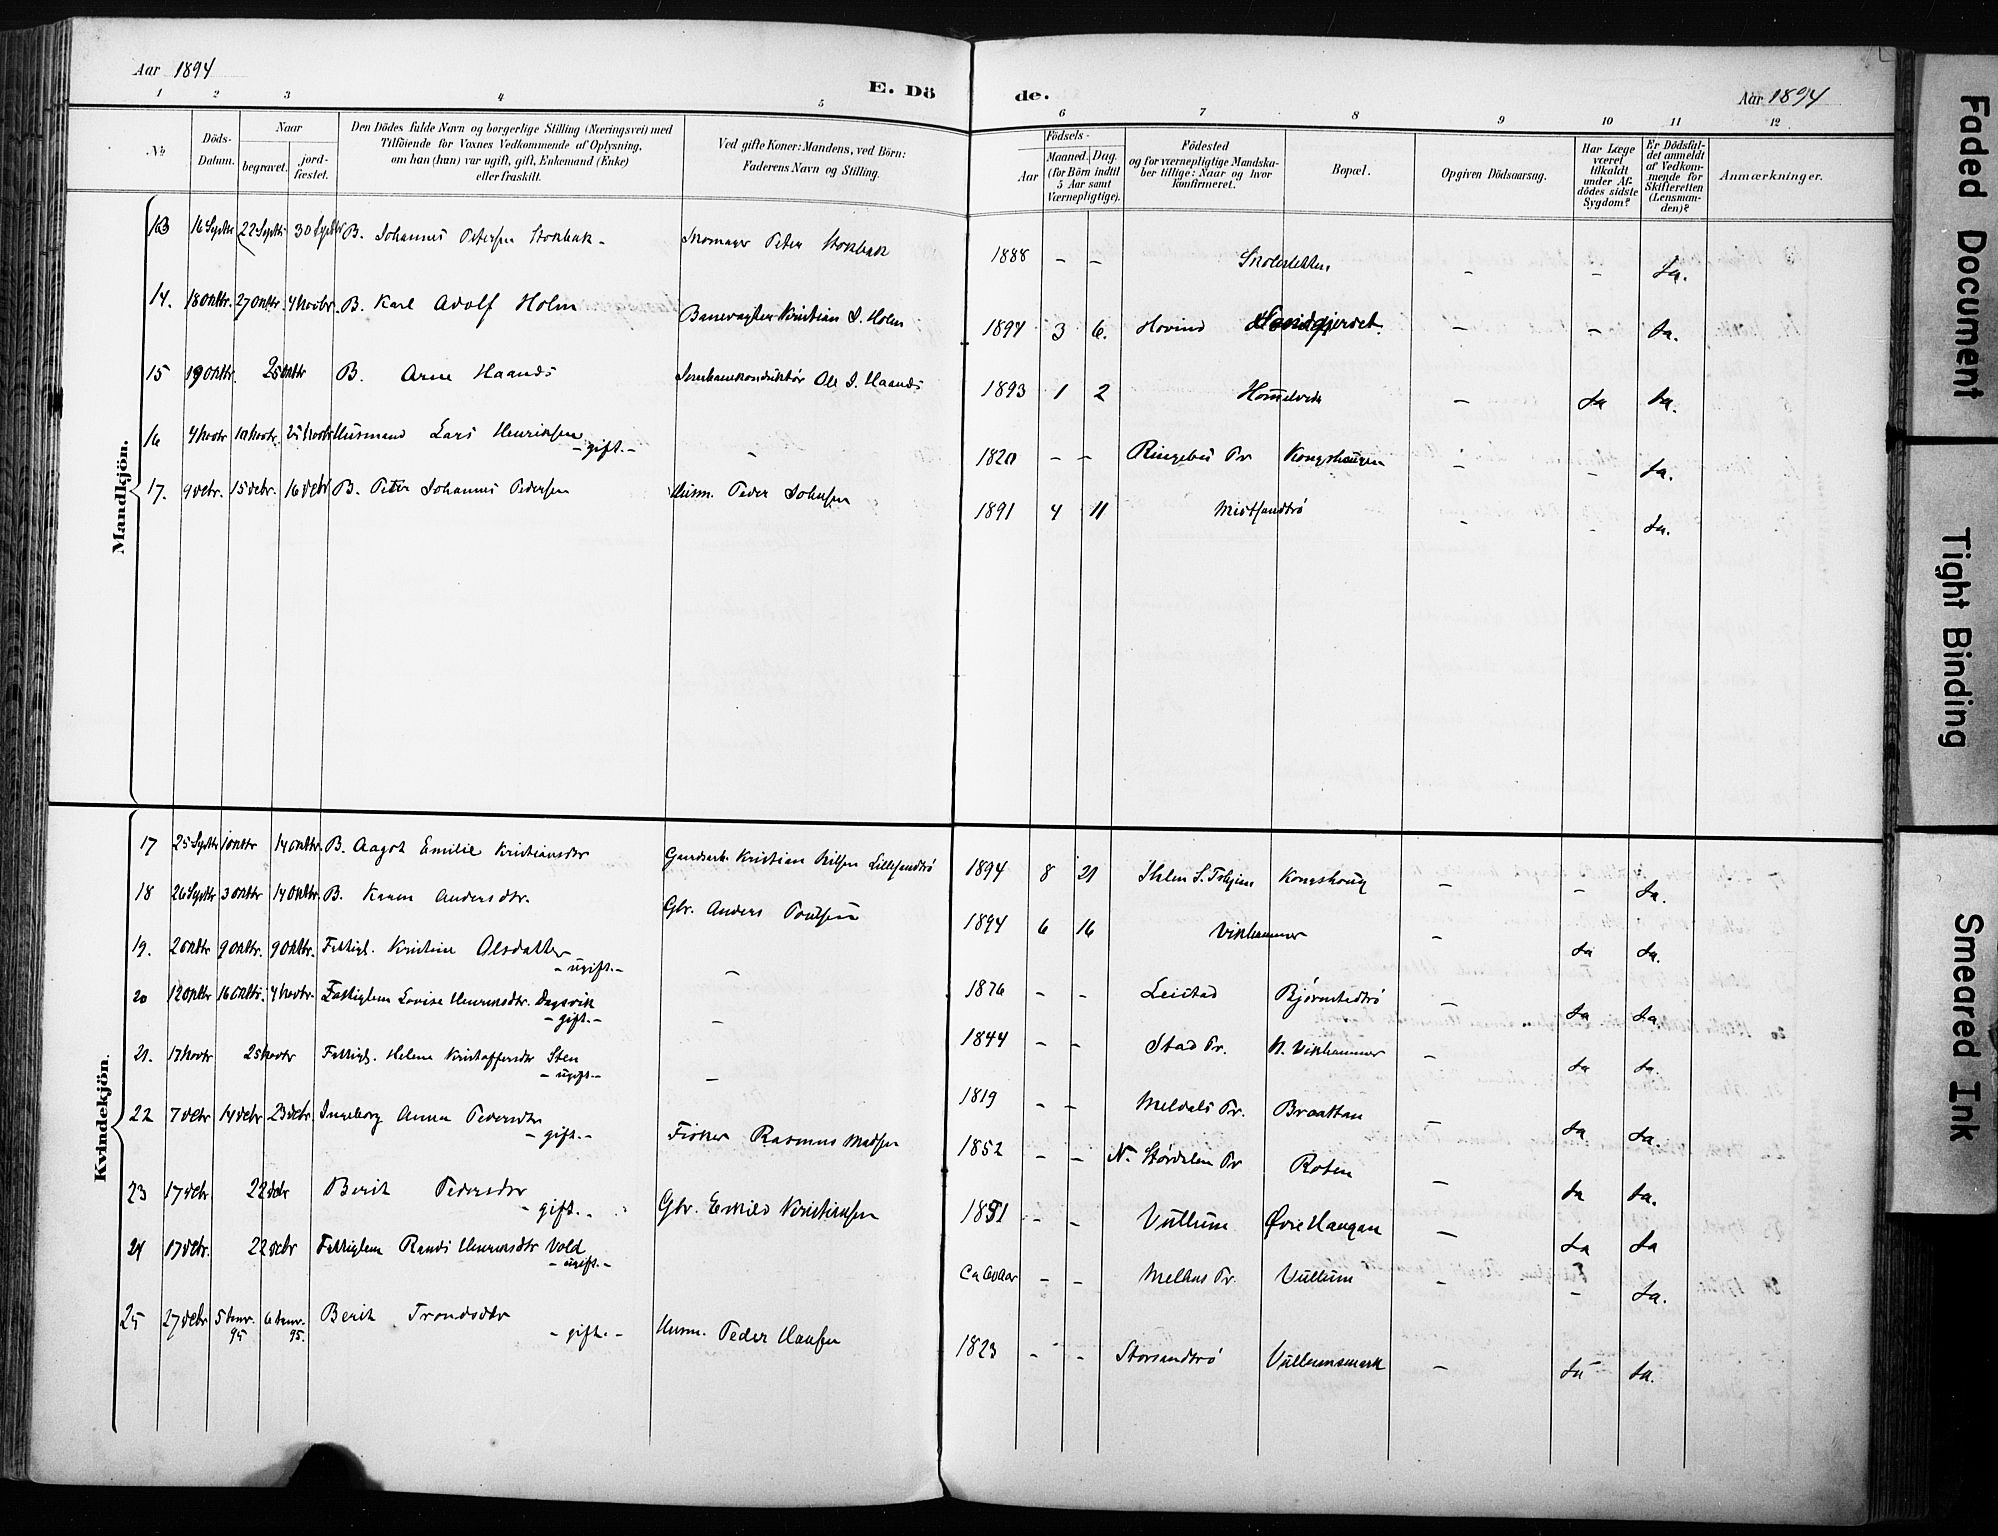 Aar 1894
E. Dö
de.
Aar 1894
1 2 3 4 5 6 7 8 9 10 11 12
No
Döds-Datum.
Naar
begravet.
jord-fæstet.
Den Dödes fulde Navn og borgerlige Stilling (Næringsvei) med
Tilföiende for Voxnes Vedkommende af Oplysning,
om han (hun) var ugift, gift, Enkemand (Enke)
eller fraskilt.
Ved gifte Koner: Mandens, ved Börn:
Faderens Navn og Stilling.
Födsels-
Aar
Maaned. Dag.
(for Börn indtil
5 Aar samt
Værnepligtige).
Födested
og for værnepligtige Mandska-
ber tillige: Naar og hvor
konfirmeret.
Bopæl.
Opgiven Dödsaarsag.
Har Læge
været
tilkaldt
under Af-
dödes sidste
Sygdom?
Er Dödsfal-
det anmeldt
af Vedkom-
mende for
Skifteretten
(Lensman-
den)?
Anmærkninger.
Mandkjön.
13 16 Septbr 22 Septbr 30 Septbr B. Johannes Petersen Stokbak - Skomager Peter Stokbak 1888 - - - - Ja.
14. 18 Oktbr. 27 Oktbr. 4 Novbr. B. Karl Adolf Holm Banevogter Kristian J. Holm 1894 3 6. Hovind - - Ja.
15 19 Oktbr. 25 Oktbr B. Arne Haands Jernbanekonduktör Ole J. Haands 1893 1 2 Hommelvik - Ja Ja.
16 4 Novbr 10 Novbr. 25 Novbr Husmand Lars Henriksen - gift. - - 1820 - - Ringebu Pr Kongshaugen - - Ja.
17. 9 Decbr. 15 Decbr. 16 Decbr B. Peter Johannes Pedersen Husm. Peder Johnsen 1891 4 11 Midtsandtrø - - Ja.
Kvindekjön.
17 25 Septbr 1 Oktbr 14 Oktbr. B. Aagot Emilie Kristiansdtr Gaardarb. Kristian Nilsen Lillesandtrø 1894 8 21 Kongshaug - - Ja.
18 26 Septbr 3 Oktbr 14 Oktbr B. Karen Andersdtr. Gbr. Anders Poulsen 1894 6 16 Vikhammer - Ja Ja.
19. 2 Oktbr 9 Oktbr. 9 Oktbr. Fattigl. Kristine Olsdatter - ugift. - - 1876 - - Leistad Bjørnstadtrø - Ja Ja.
20 12 Oktbr 16 Oktbr. 4 Novbr. Fattiglem Lovise Henriksdtr. Dagsvik - gift. - - 1844 - - Stad Pr. N. Vikhammer - Ja Ja.
21. 17 Novbr 25 Novbr Fattigl. Helena Kristoffersdtr Sten - ugift. - - 1819 - - Meldals Pr. Braattan - Ja Ja.
22 7 Decbr 14 Decbr 23 Decbr. Ingeborg Anna Pedersdtr - gift. - Fisker Rasmus Madsen 1852 - - N. Størdalen Pr Roten - Ja Ja.
23 17 Decbr. 22 Decbr Berit Pedersdtr - gift. - Gbr. Eskild Kristiansen 1831 - - Vullum Øvre Haugan - Ja Ja
24 17 Decbr. 22 Decbr Fattiglem Randi Henriksdtr Vold - ugift. - Ca 60 Aar - - Melhus Pr. Vullum - - Ja.
25 27 Decbr 5 Janr. 95 6 Janr. 95. Berit Trondsdtr - gift. - Husm. Peder Hansen 1823 - - Storsandtrø Vullumsmark - Ja Ja.
Faded Document
Tight Binding
Smeared Ink